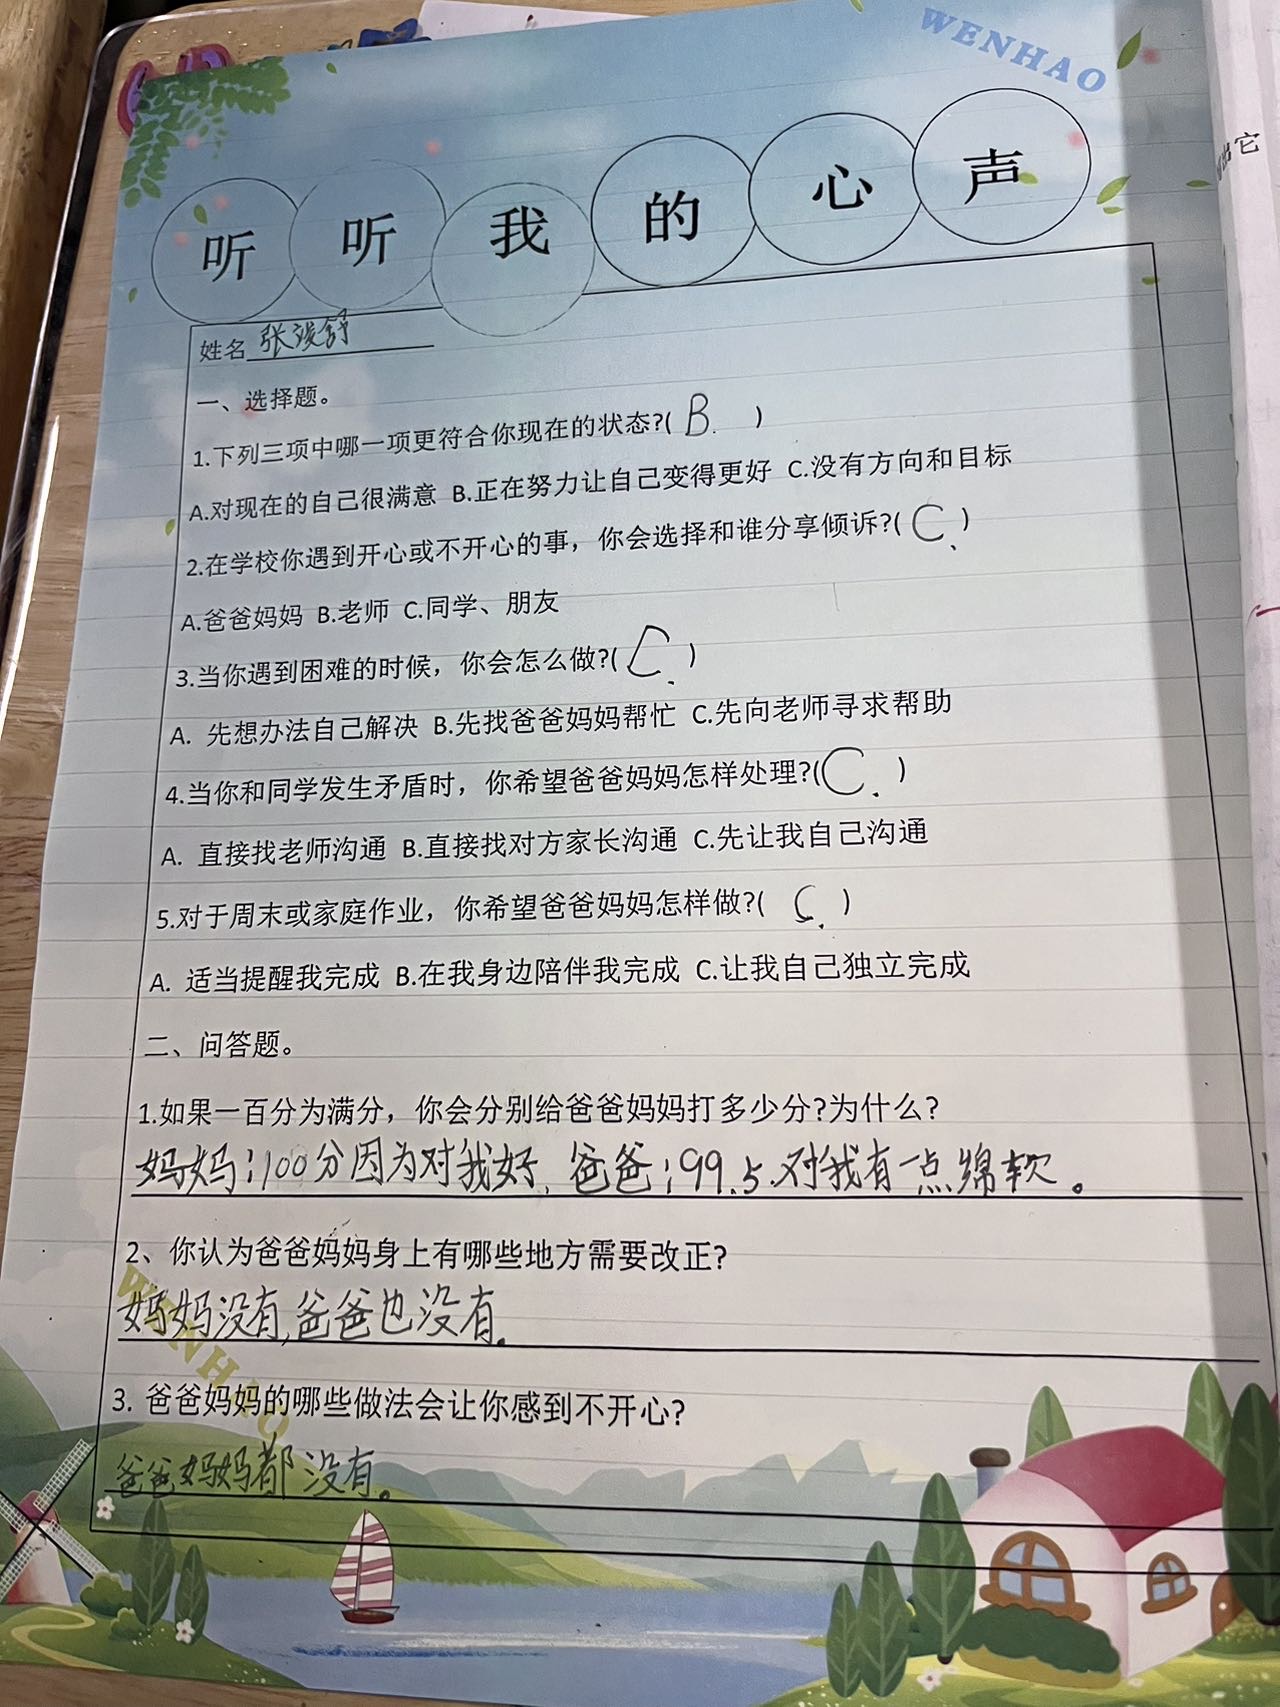 WENHAO
听听我的心声
姓名 张浚舒
一、选择题。
1.下列三项中哪一项更符合你现在的状态?( B. )
A.对现在的自己很满意 B.正在努力让自己变得更好 C.没有方向和目标
2.在学校你遇到开心或不开心的事，你会选择和谁分享倾诉?( C. )
A.爸爸妈妈 B.老师 C.同学、朋友
3.当你遇到困难的时候，你会怎么做?( C. )
A. 先想办法自己解决 B.先找爸爸妈妈帮忙 C.先向老师寻求帮助
4.当你和同学发生矛盾时，你希望爸爸妈妈怎样处理?( C. )
A. 直接找老师沟通 B.直接找对方家长沟通 C.先让我自己沟通
5.对于周末或家庭作业，你希望爸爸妈妈怎样做?( C. )
A. 适当提醒我完成 B.在我身边陪伴我完成 C.让我自己独立完成
二、问答题。
1.如果一百分为满分，你会分别给爸爸妈妈打多少分?为什么?
妈妈:100分因为对我好、爸爸:99.5.对我有一点绵软。
2、你认为爸爸妈妈身上有哪些地方需要改正?
妈妈没有,爸爸也没有.
3. 爸爸妈妈的哪些做法会让你感到不开心?
爸爸妈妈都没有。
WENHAO
出它